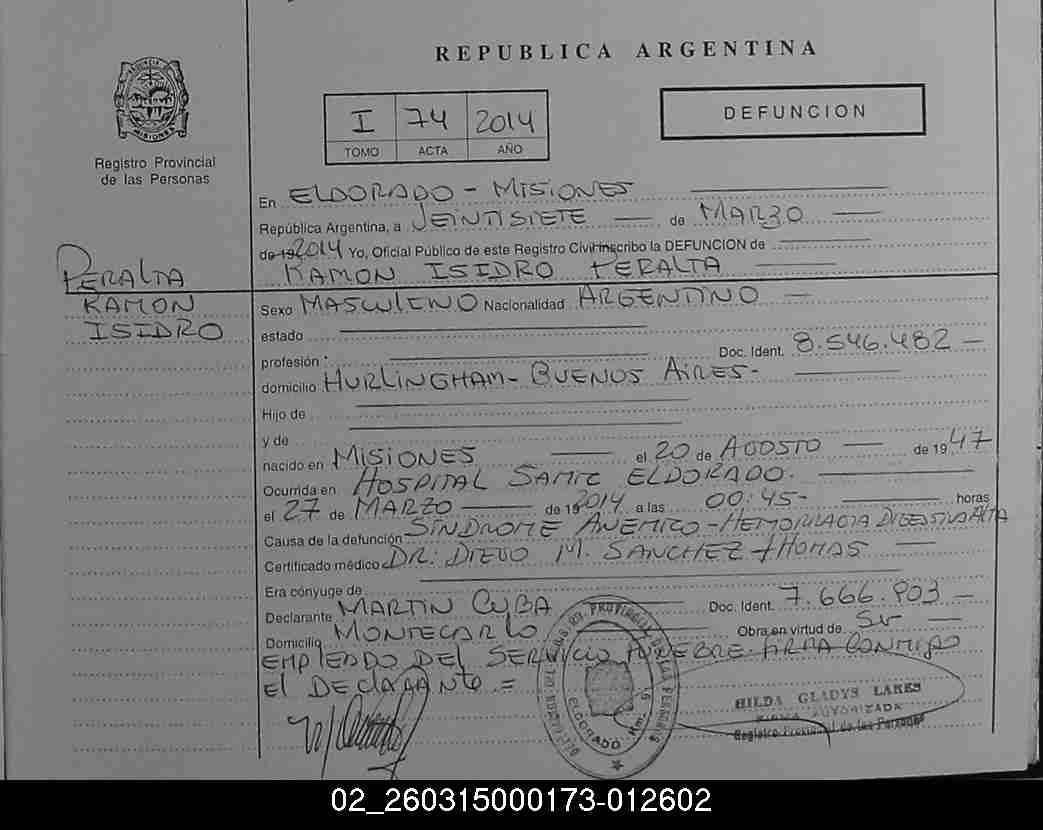 REPUBLICA ARGENTINA
PROVINCIA DE MISIONES
Registro Provincial
de las Personas
I 74 2014
TOMO ACTA AÑO
DEFUNCION
En ELDORADO - MISIONES
República Argentina, a VEINTISIETE de MARZO
de 19 2014 Yo, Oficial Público de este Registro Civil inscribo la DEFUNCION de
RAMON ISIDRO PERALTA
PERALTA
RAMON
ISIDRO
Sexo MASCULINO Nacionalidad ARGENTINO
estado
profesión Doc. Ident. 8.546.482
domicilio HURLINGHAM - BUENOS AIRES -
Hijo de
y de
nacido en MISIONES el 20 de AGOSTO de 1947
Ocurrida en HOSPITAL SAMIC ELDORADO.
el 27 de MARZO de 19 2014 a las 00:45- horas
Causa de la defunción SINDROME ANEMICO - HEMORRAGIA DIGESTIVA ALTA
Certificado médico DR. DIEGO M. SANCHEZ THOMAS
Era cónyuge de
Declarante MARTIN CUBA Doc. Ident. 7.666.903
Domicilio MONTECARLO Obra en virtud de SER
EMPLEADO DEL SERVICIO FUNEBRE. FIRMA CONMIGO
El DEClARANTE =
ELDORADO
HILDA GLADYS LARES
FIRMA AUTORIZADA
Registro Provincial de las Personas
02_260315000173-012602